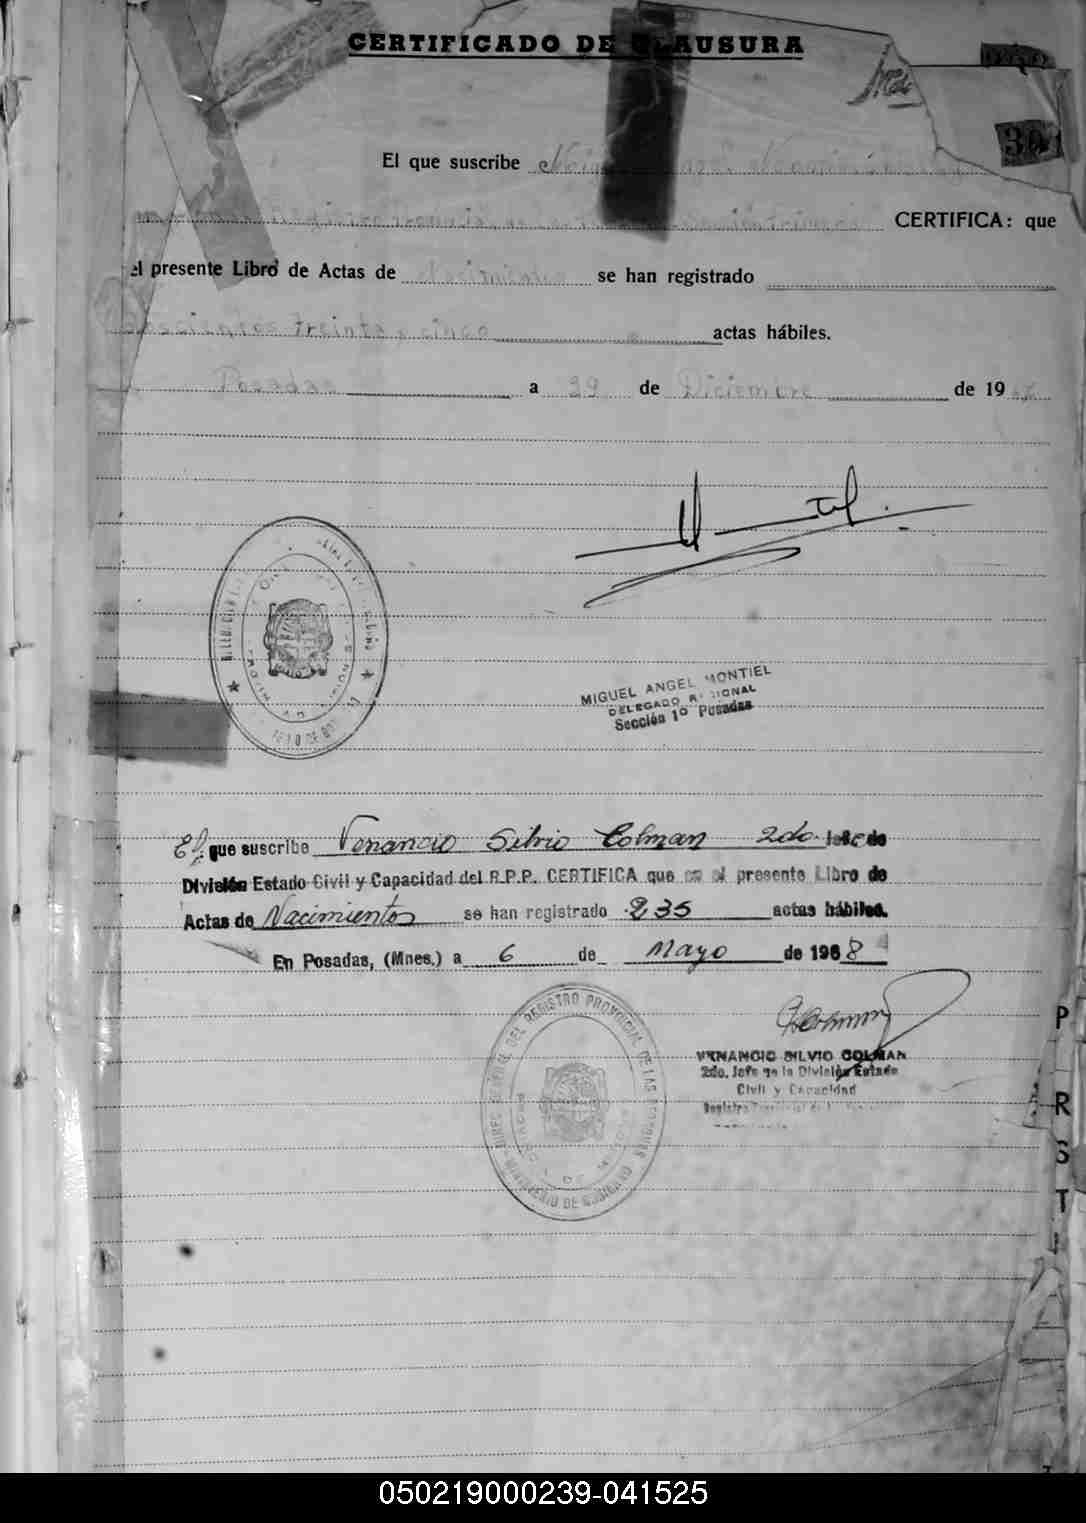 CERTIFICADO DE CLAUSURA
301
El que suscribe
CERTIFICA: que
el presente Libro de Actas de Nacimientos se han registrado
Doscientos treinta y cinco actas hábiles.
Posadas a 29 de Diciembre de 19
MIGUEL ANGEL MONTIEL
DELEGADO REGIONAL
Sección 1º Posadas
El que suscribe Venancio Silvio Colman 2do. Jefe de
División Estado Civil y Capacidad del R.P.P. CERTIFICA que en el presente Libro de
Actas de Nacimientos se han registrado 235 actas hábiles.
En Posadas, (Mnes.) a 6 de Mayo de 1968
DIREC. GENERAL DEL REGISTRO PROVINCIAL DE LAS PERSONAS
MINISTERIO DE GOBIERNO
VENANCIO SILVIO COLMAN
2do. Jefe de la División Estado
Civil y Capacidad
P
R
S
T
050219000239-041525